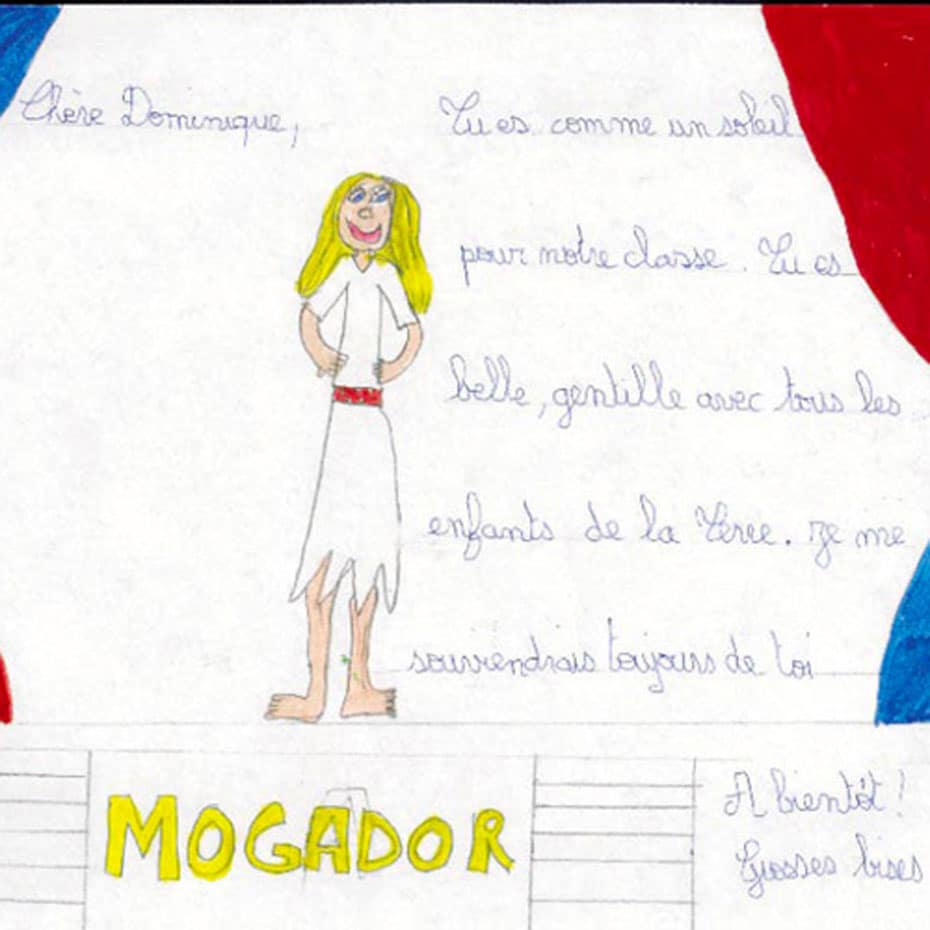 Chère Dominique,
Tu es comme un soleil
pour notre classe. Tu es
belle, gentille avec tous les
enfants de la Terre. Je me
souviendrais toujours de toi
MOGADOR
A bientôt!
Grosses bises